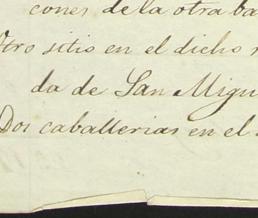 cones de la otra ba
Otro sitio en el dicho
da de San Migu
Dos caballerias en el